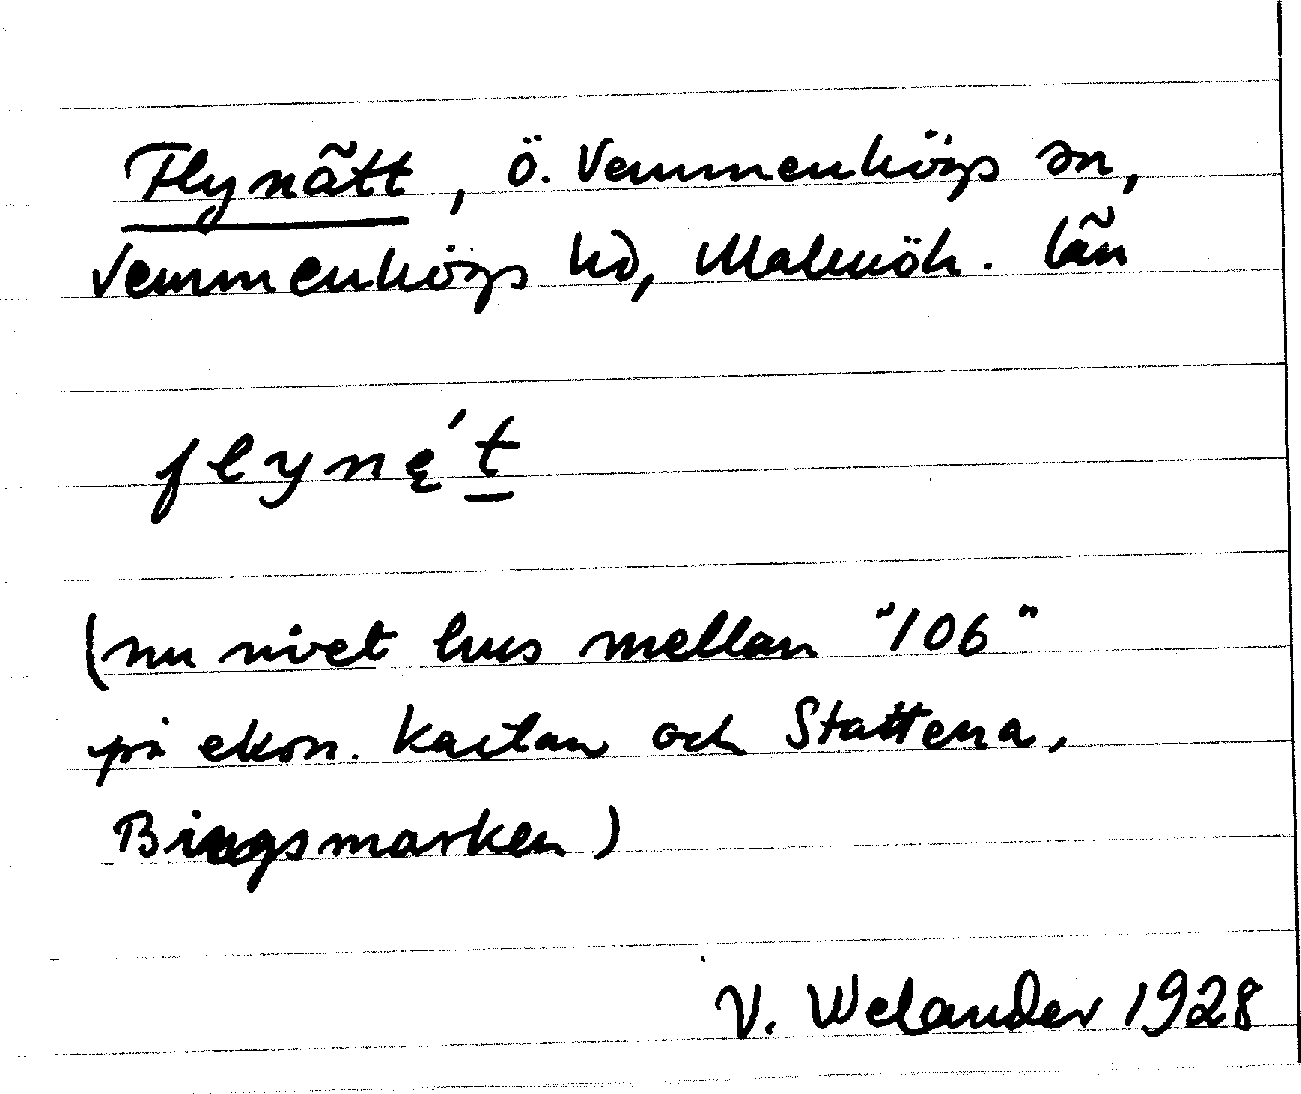 Flynätt, Ö. Vemmenhögs sn,
Vemmenhögs hd, Malmöh. län
flyne̢´t̲
(nu rivet hus mellan "106"
på ekon. kartan och Stattena,
Bingsmarken)
V. Welander 1928